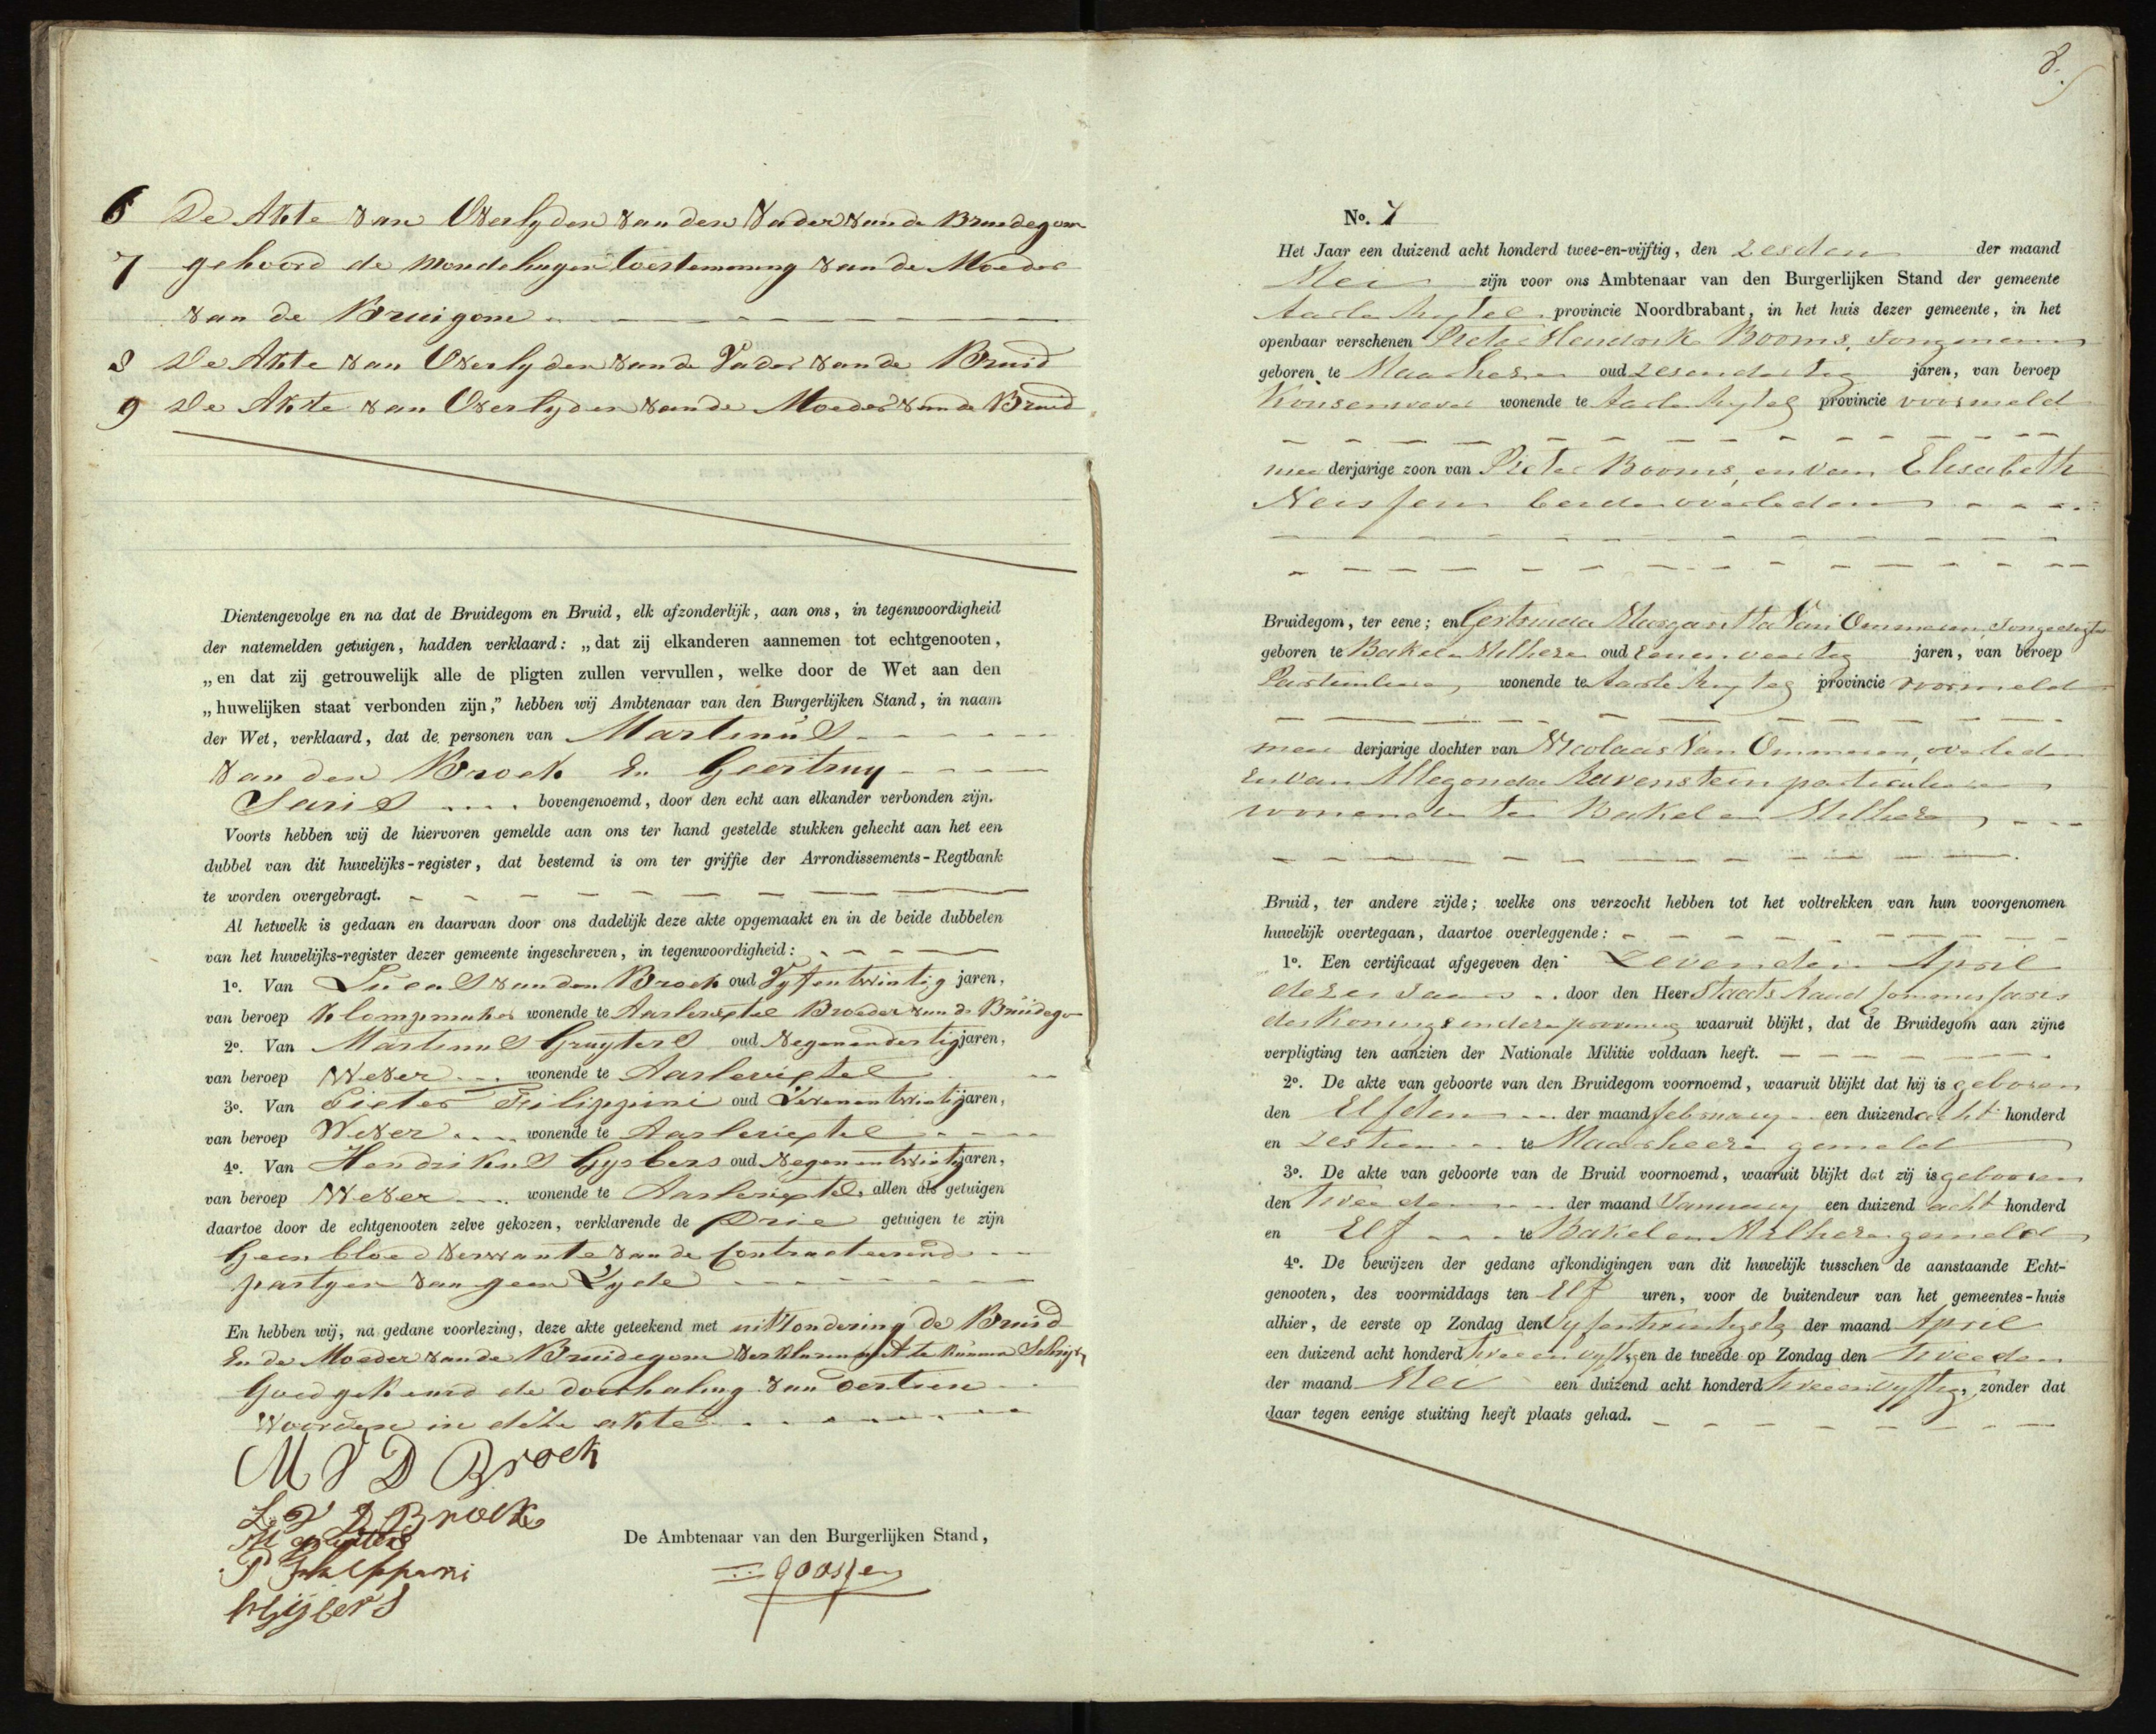 6 De Akte van Overlyden van den Vader van de Bruidegom
7 gehoord de Mondelingen toestemming van de Moeder
van de Bruigom
8 De Akte van Overlyden van de Vader van de Bruid
9 De Akte van Overlyden van de Moeder van de Bruid
Dientengevolge en na dat de Bruidegom en Bruid, elk afzonderlijk, aan ons, in tegenwoordigheid
der natemelden getuigen, hadden verklaard: „dat zij elkanderen aannemen tot echtgenooten,
„en dat zij getrouwelijk alle de pligten zullen vervullen, welke door de Wet aan den
„huwelijken staat verbonden zijn,” hebben wij Ambtenaar van den Burgerlijken Stand, in naam
der Wet, verklaard, dat de personen van Martinus
van den Broek En Geertruy
Saris bovengenoemd, door den echt aan elkander verbonden zijn.
Voorts hebben wij de hiervoren gemelde aan ons ter hand gestelde stukken gehecht aan het een
dubbel van dit huwelijks-register, dat bestemd is om ter griffie der Arrondissements-Regtbank
te worden overgebragt.
Al hetwelk is gedaan en daarvan door ons dadelijk deze akte opgemaakt en in de beide dubbelen
van het huwelijks-register dezer gemeente ingeschreven, in tegenwoordigheid:
1o. Van Lucas van den Broek oud Vyfentwintig jaren,
van beroep Klompmaker wonende te Aarlerixtel Broeder van de Bruidego
2o. Van Martinus Gruyters oud Negenendertig jaren,
van beroep Wever wonende te Aarlerixtel
3o. Van Pieter Filippini oud Zevenentwintig jaren,
van beroep Wever wonende te Aarlerixtel
4o. Van Hendrikus Gysbers oud Negenentwintig jaren,
van beroep Wever wonende te Aarlerixtel, allen als getuigen
daartoe door de echtgenooten zelve gekozen, verklarende de Drie getuigen te zijn
Geen bloedverwante van de Contracteerende
partyen van geen Zyde
En hebben wij, na gedane voorlezing, deze akte geteekend met uitzondering de Bruid
En de Moeder van de Bruidegom Verklarende niet te kunnen Schryven
Goedgekeurd de doorhaling van dertien
Woorden in deze akte
M V D Broek
L V D Broek
M Gruijters
P Philippini
H Gijsbers
De Ambtenaar van den Burgerlijken Stand,
Goossens
8.
No. 7
Het Jaar een duizend acht honderd twee-en-vijftig, den zesden der maand
Mei zijn voor ons Ambtenaar van den Burgerlijken Stand der gemeente
Aarle Rixtel provincie Noordbrabant, in het huis dezer gemeente, in het
openbaar verschenen Pieter Hendrik Booms, Jongeman
geboren te Maarheeze oud zesendertig jaren, van beroep
Kousenwever wonende te Aarle Rixtel provincie voormeld
meerderjarige zoon van Pieter Booms, en van Elisabeth
Neissen beide overleden
Bruidegom, ter eene; en Gertruida Margaritta Van Ommeren, Jongedogter
geboren te Bakel en Milheze oud eenenveertig jaren, van beroep
Particuliere, wonende te Aarle Rixtel provincie voormeld
meerderjarige dochter van Nicolaas Van Ommeren, overleden
en van Allegonda Ravenstein particuliere
wonende te Bakel en Milheze
Bruid, ter andere zijde; welke ons verzocht hebben tot het voltrekken van hun voorgenomen
huwelijk overtegaan, daartoe overleggende:
1o. Een certificaat afgegeven den Zevenden April
dezes Jaars door den Heer Staats Raad Commissaris
des Konings in deze provincie waaruit blijkt, dat de Bruidegom aan zijne
verpligting ten aanzien der Nationale Militie voldaan heeft.
2o. De akte van geboorte van den Bruidegom voornoemd, waaruit blijkt dat hij is geboren
den Elfden der maand february een duizend acht honderd
en zestien te Maarheeze gemeld
3o. De akte van geboorte van de Bruid voornoemd, waaruit blijkt dat zij is geboren
den tweeden der maand January een duizend acht honderd
en Elf te Bakel en Milheze gemeld
4o. De bewijzen der gedane afkondigingen van dit huwelijk tusschen de aanstaande Echt-
genooten, des voormiddags ten Elf uren, voor de buitendeur van het gemeentes-huis
alhier, de eerste op Zondag den Vyfentwintigste der maand April
een duizend acht honderd tweeenvyftig, en de tweede op Zondag den tweeden
der maand Mei een duizend acht honderd tweeenvyftig, zonder dat
daar tegen eenige stuiting heeft plaats gehad.